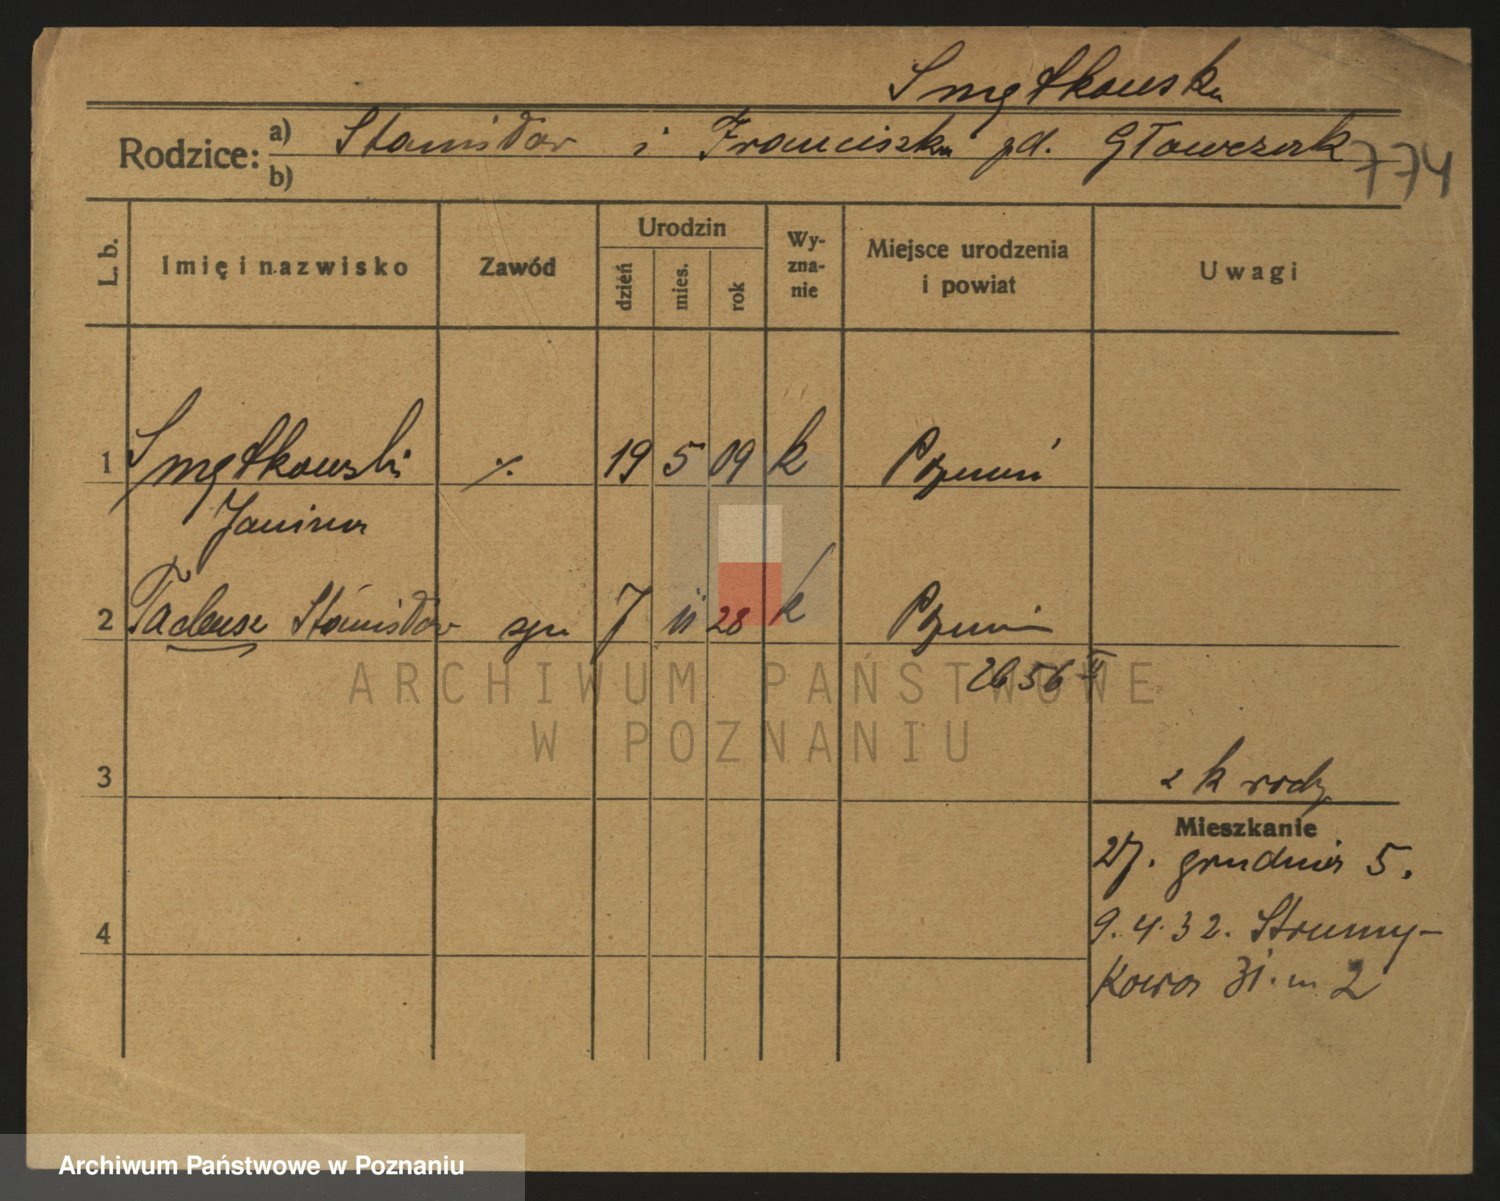 Smętkowska
Rodzice: a) Stanisław i Franciszka gd. Gławczak
b)
774
L. b.
Imię i nazwisko
Zawód
Urodzin
dzień
mies.
rok
Wy-
zna-
nie
Miejsce urodzenia
i powiat
Uwagi
1 Smętkowski ·/. 19 5 09 k Poznań
Janina
2 Tadeusz Stanisław syn 7 11 28 k Poznań
2656 II
ARCHIWUM PAŃSTWOWE
W POZNANIU
3
z k rodz
Mieszkanie
27. grudnia 5.
4
9.4.32. Strumy-
kowa 31. m 2
Archiwum Państwowe w Poznaniu